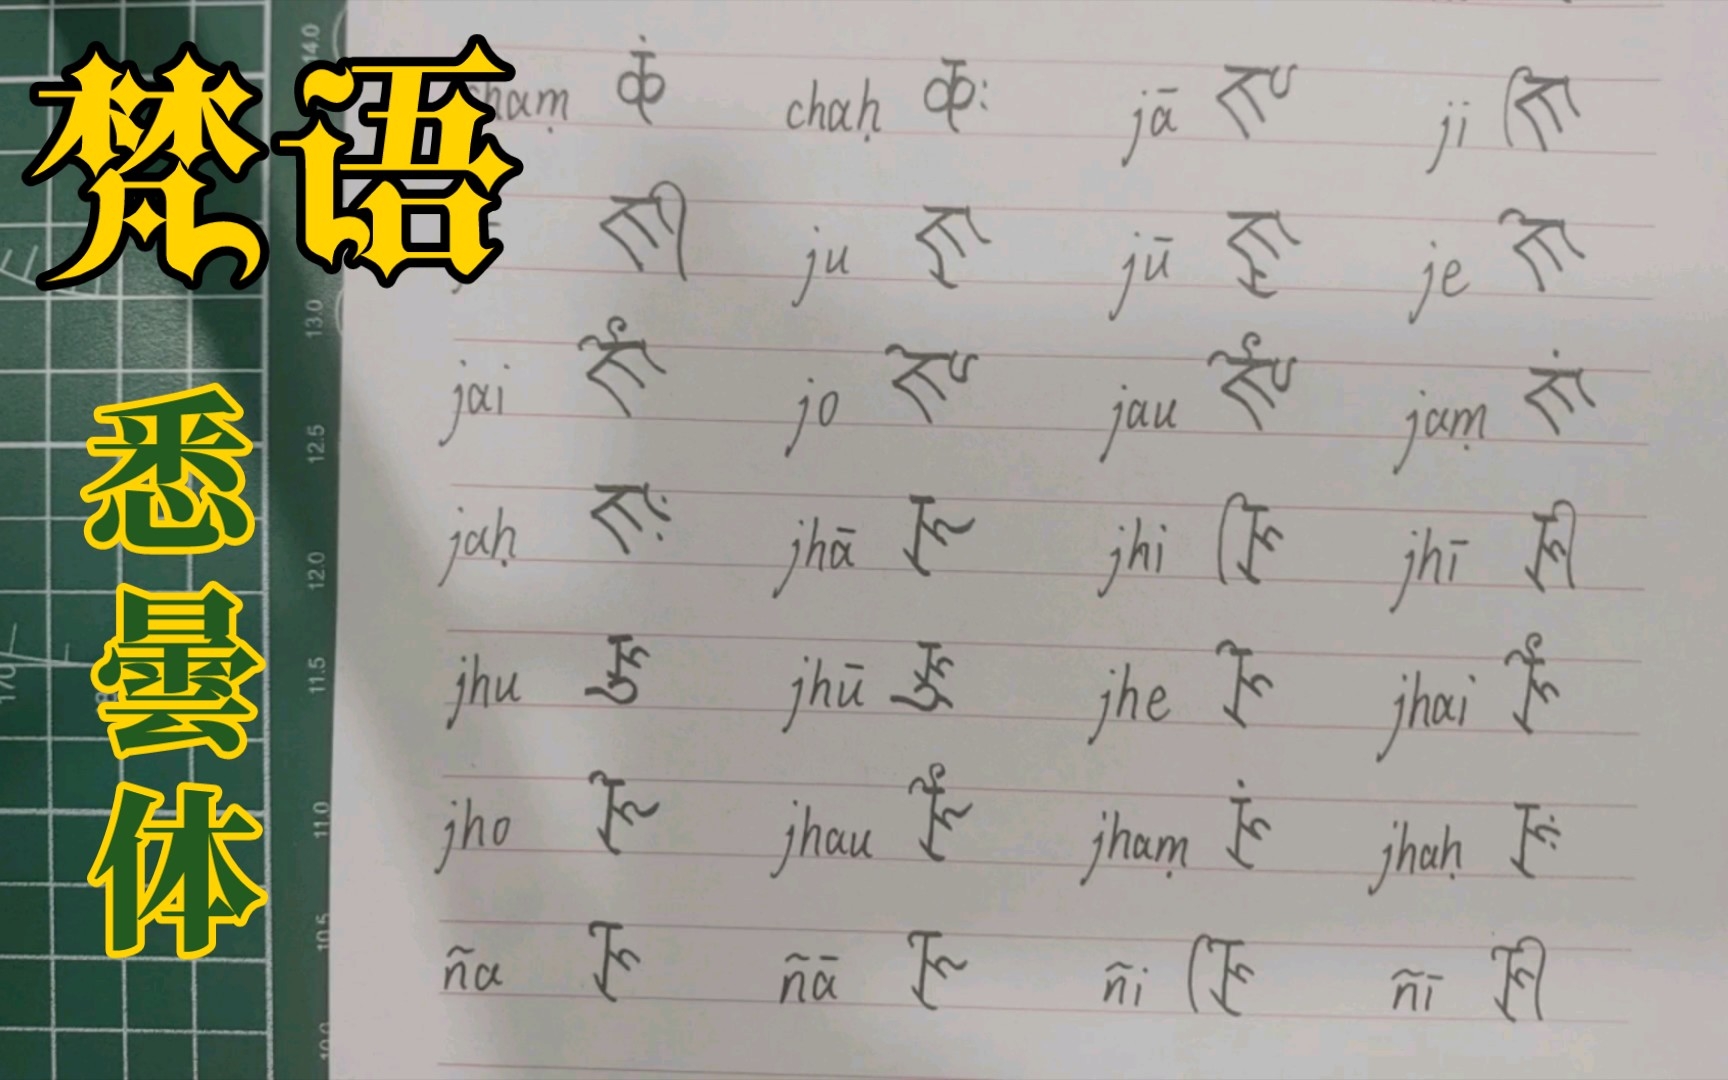 梵语
悉昙体
chaṃ 𑖔𑖽 chaḥ 𑖔𑖾 jā 𑖕𑖯 ji 𑖕𑖰
𑖕𑖱 ju 𑖕𑖲 jū 𑖕𑖳 je 𑖕𑖸
jai 𑖕𑖹 jo 𑖕𑖺 jau 𑖕𑖻 jaṃ 𑖕𑖽
jaḥ 𑖕𑖾 jhā 𑖖𑖯 jhi 𑖖𑖰 jhī 𑖖𑖱
jhu 𑖖𑖲 jhū 𑖖𑖳 jhe 𑖖𑖸 jhai 𑖖𑖹
jho 𑖖𑖺 jhau 𑖖𑖻 jhaṃ 𑖖𑖽 jhaḥ 𑖖𑖾
ña 𑖗 ñā 𑖗𑖯 ñi 𑖗𑖰 ñī 𑖗𑖱
14.0
13.0
12.5
12.0
11.5
11.0
10.5
170